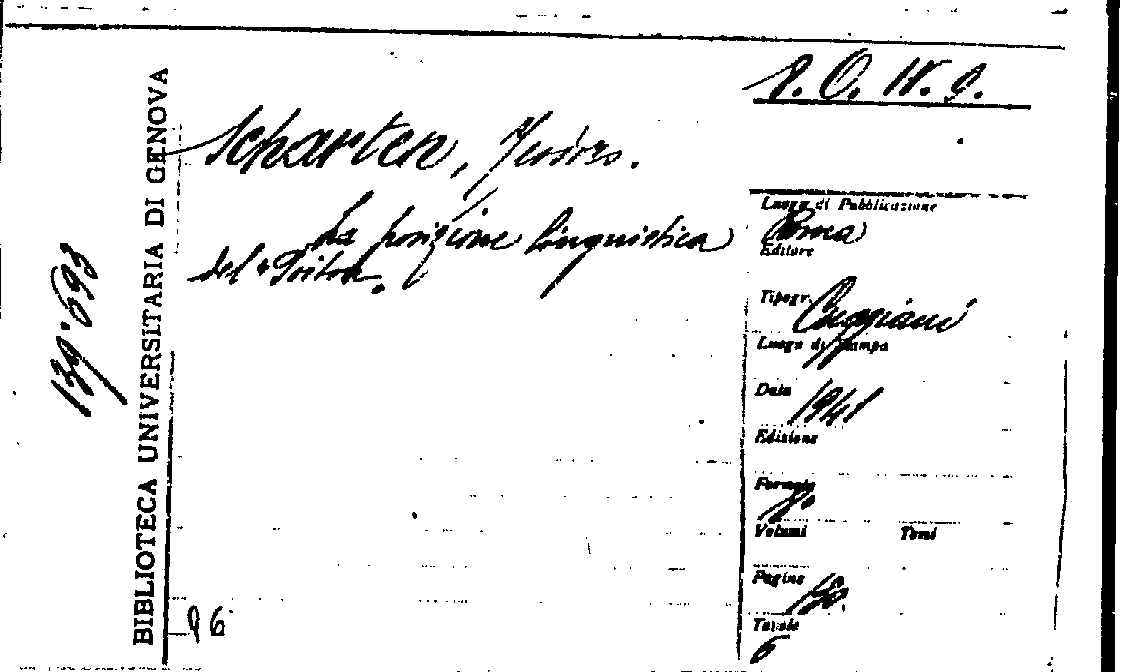 BIBLIOTECA UNIVERSITARIA DI GENOVA
139.693
Scharten, Teodoro.
La posizione linguistica
del "Poitou".
96
Luogo di Pubblicazione
Roma
Editore
Tipogr.
Cuggiani
Luogo di Stampa
Data
1941
Edizione
Formato
8°
Volumi Tomi
Pagine
Tavole
6